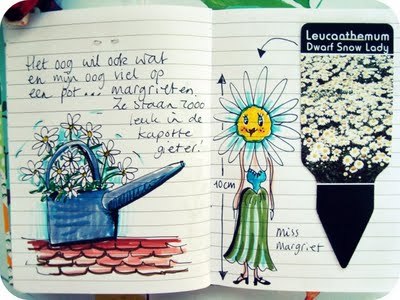 Het oog wil ook wat
en mijn oog viel op
een pot... margrieten.
Ze staan zooo
leuk in de
kapotte
gieter!
Leucanthemum
Dwarf Snow Lady
10cm
miss
margriet